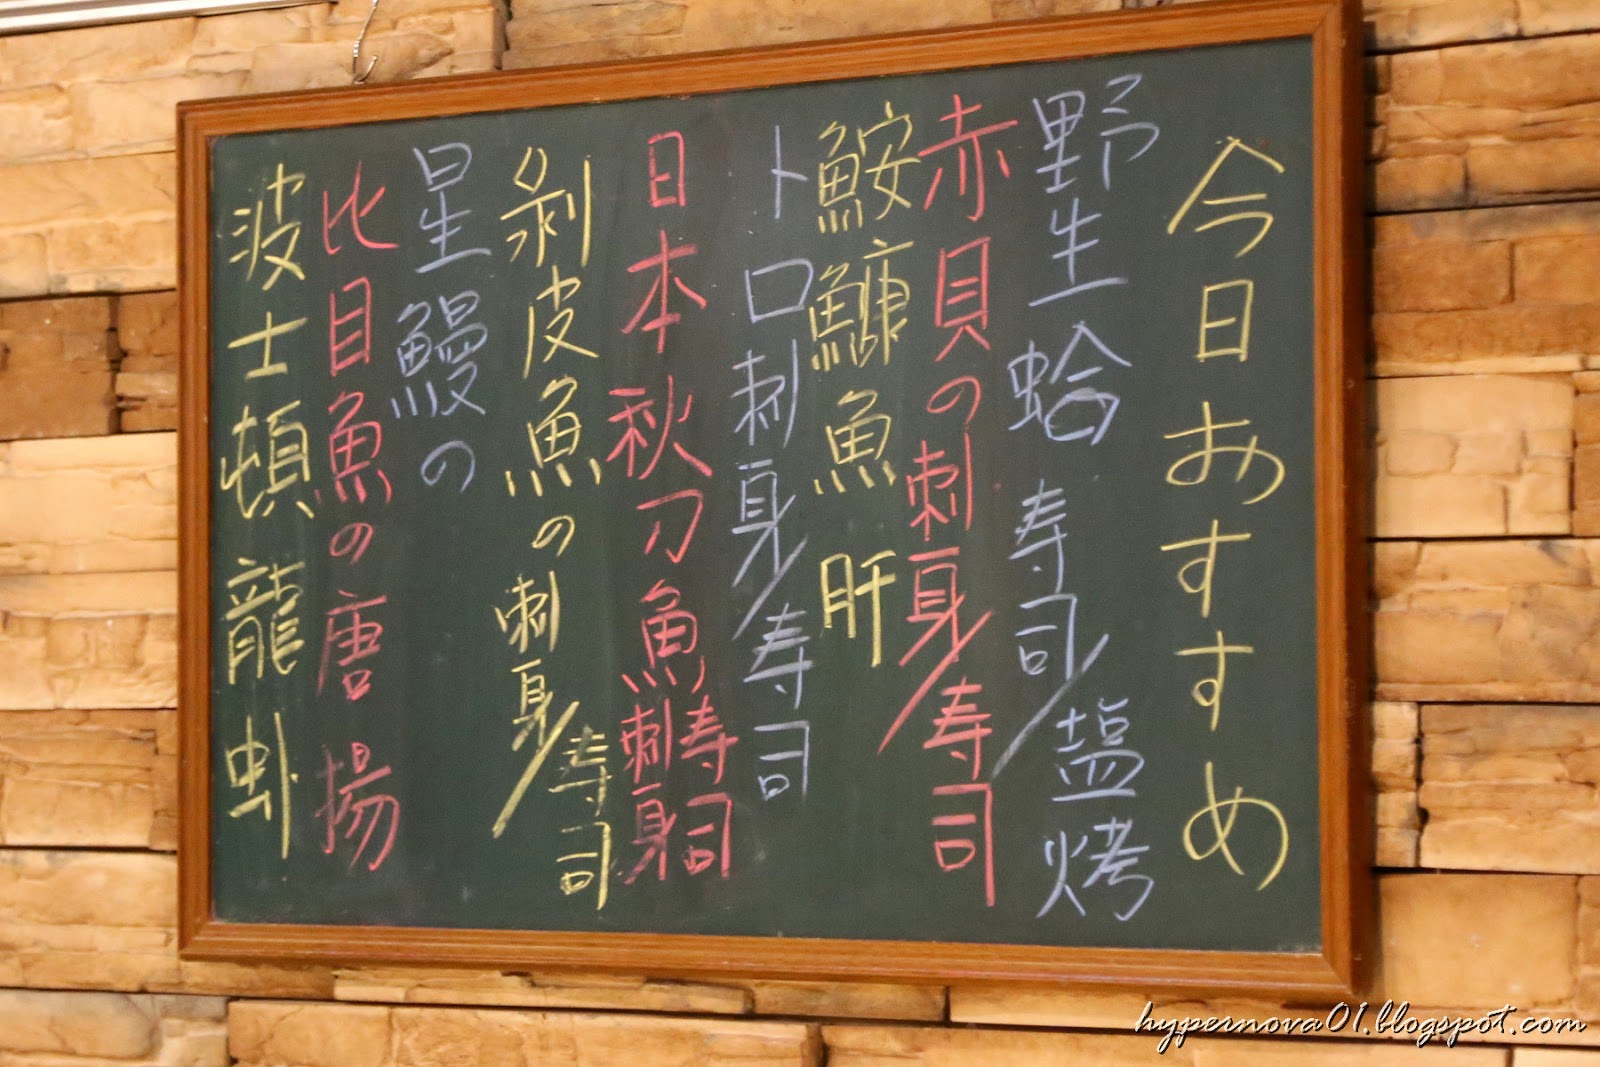 今日おすすめ
野生蛤 寿司/塩烤
赤貝の刺身/寿司
鮟鱇魚 肝
トロ刺身/寿司
日本秋刀魚刺身寿司
剥皮魚の刺身/寿司
星鰻の
比目魚の唐揚
波士頓龍虾
hypernova01.blogspot.com